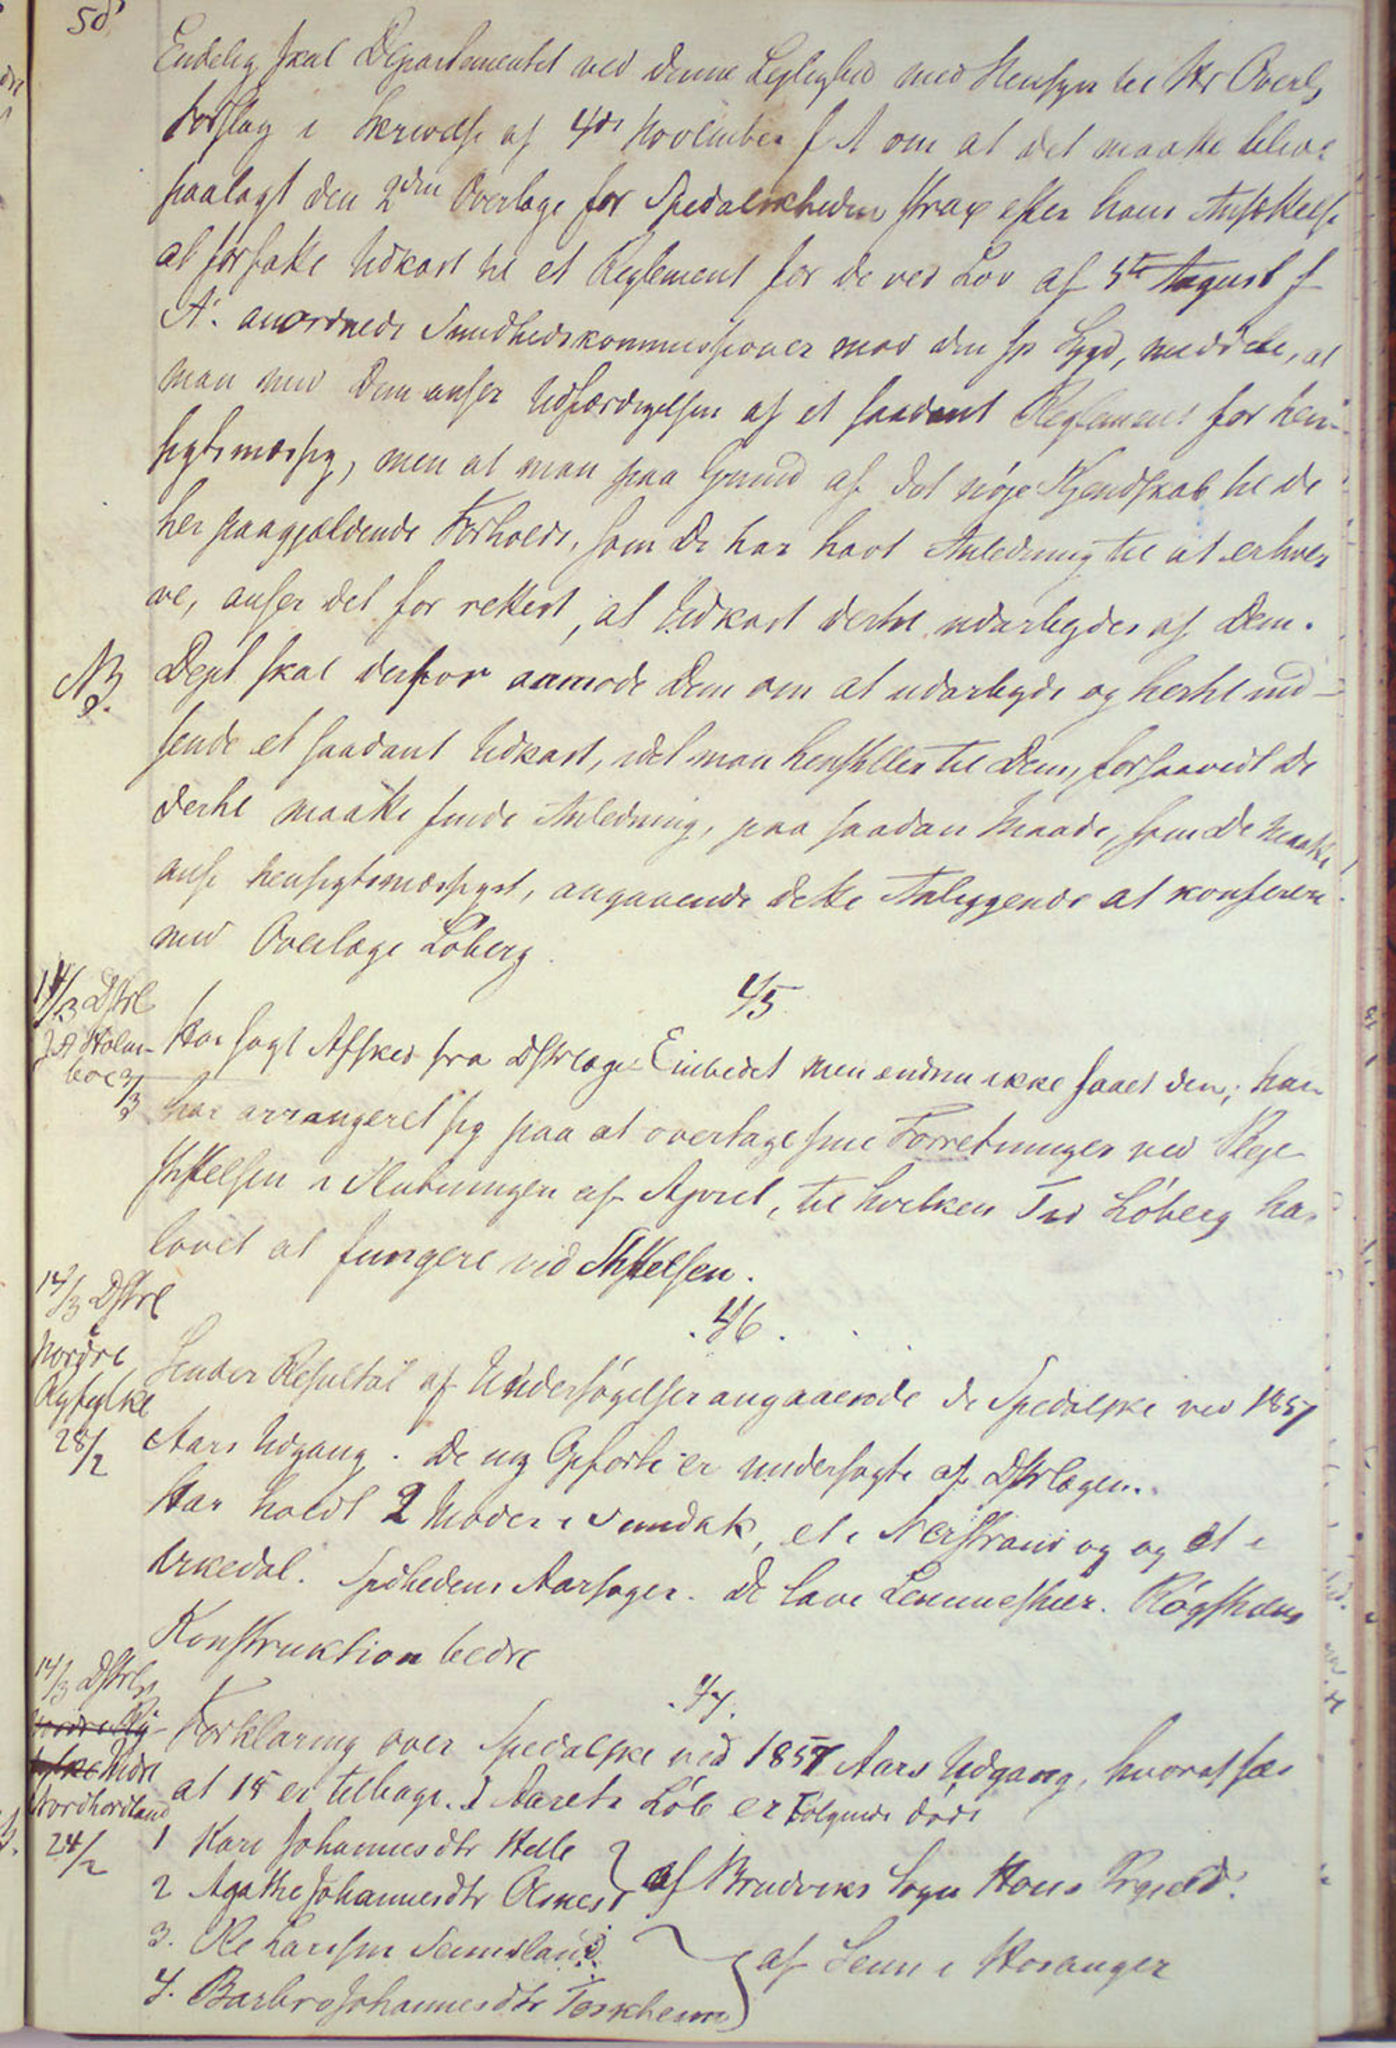 58
Endelig skal Departementet ved denne Leilighed med Hensyn til Hr Overl.
Forslag i Skrivelse af 4de November f A om at det maatte blive
paalagt den 2den Overlæge for Spedalskheden strax efter hans Ansættelse
at forfatte Udkast til et Reglement for de ved Lov af 5te August f
A. anordnede Sundhedskommissioner mod den sp Sygd, meddele, at
man med Dem anser Udfærdigelsen af et saadant Reglement for hen-
sigtsmæssig, men at man paa Grund af det nøje Kjendskab til de
her paagjældende Forholde, som De har havt Anledning til at erhver
ve, anser det for rettest, at Udkast dertil udarbeydes af Dem.
NB. Dept skal derfor anmode Dem om at udarbeyde og hertil ind-
sende et saadant Udkast, idet man henstiller til Dem, forsaavidt De
dertil maatte finde Anledning, paa saadan Maade, som De maatte
anse hensigtsmæssigst, angaaende dette Anliggende at konferere
med Overlæge Løberg.
45
14/3 Dstrl
J A Holm-
boe 3/3
Har søgt Afsked fra Dstrlæge-Embedet men endnu ikke faaet den; han
har arrangeret sig paa at overtage sine Forretninger ved Pleje
stiftelsen i Slutningen af April, til hvilken Tid Løberg har
lovet at fungere ved Stiftelsen.
46.
14/3 Dstrl
i
nordre
Ryfylke
28/2
Sender Resultat af Undersøgelser angaaende de Spedalske ved 1857
Aars Udgang. De ny Opførte er undersøgte af Dstrlægen.
Har holdt 2 Møder i Sundhk, et i Nerstrand og og et i
Arkedal. Spdhedens Aarsager. De lave Lemmestuer. Røgstuens
Konstruktion bedre
47.
14/3 Dstrl
nordre Ry-
fylke Ndre
Nordhordland
24/2
Forklaring over Spedalske ved 1857 Aars Udgang, hvoraf sees
at 18 er tilbage. I Aarets Løb er Følgende døde
1 Kari Johannesdtr Helle
2 Agathe Johannesdtr Olsnes
af Bruviks Sogn Hous Prgjeld.
3. Ole Larssen
4. Barbro Johannesdtr
af i Hosanger